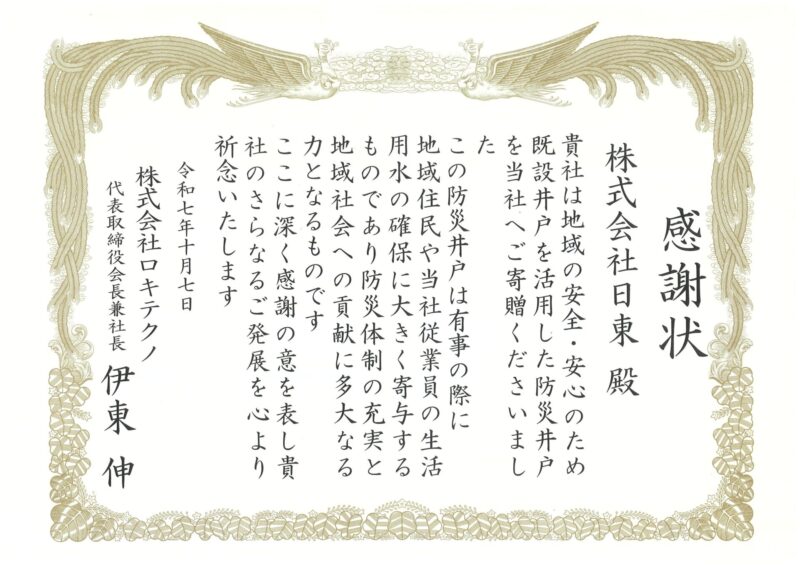 感謝状
株式会社日東 殿
貴社は地域の安全・安心のため
既設井戸を活用した防災井戸
を当社へご寄贈くださいまし
た
この防災井戸は有事の際に
地域住民や当社従業員の生活
用水の確保に大きく寄与する
ものであり防災体制の充実と
地域社会への貢献に多大なる
力となるものです
ここに深く感謝の意を表し貴
社のさらなるご発展を心より
祈念いたします
令和七年十月七日
株式会社ロキテクノ
代表取締役会長兼社長 伊東 伸